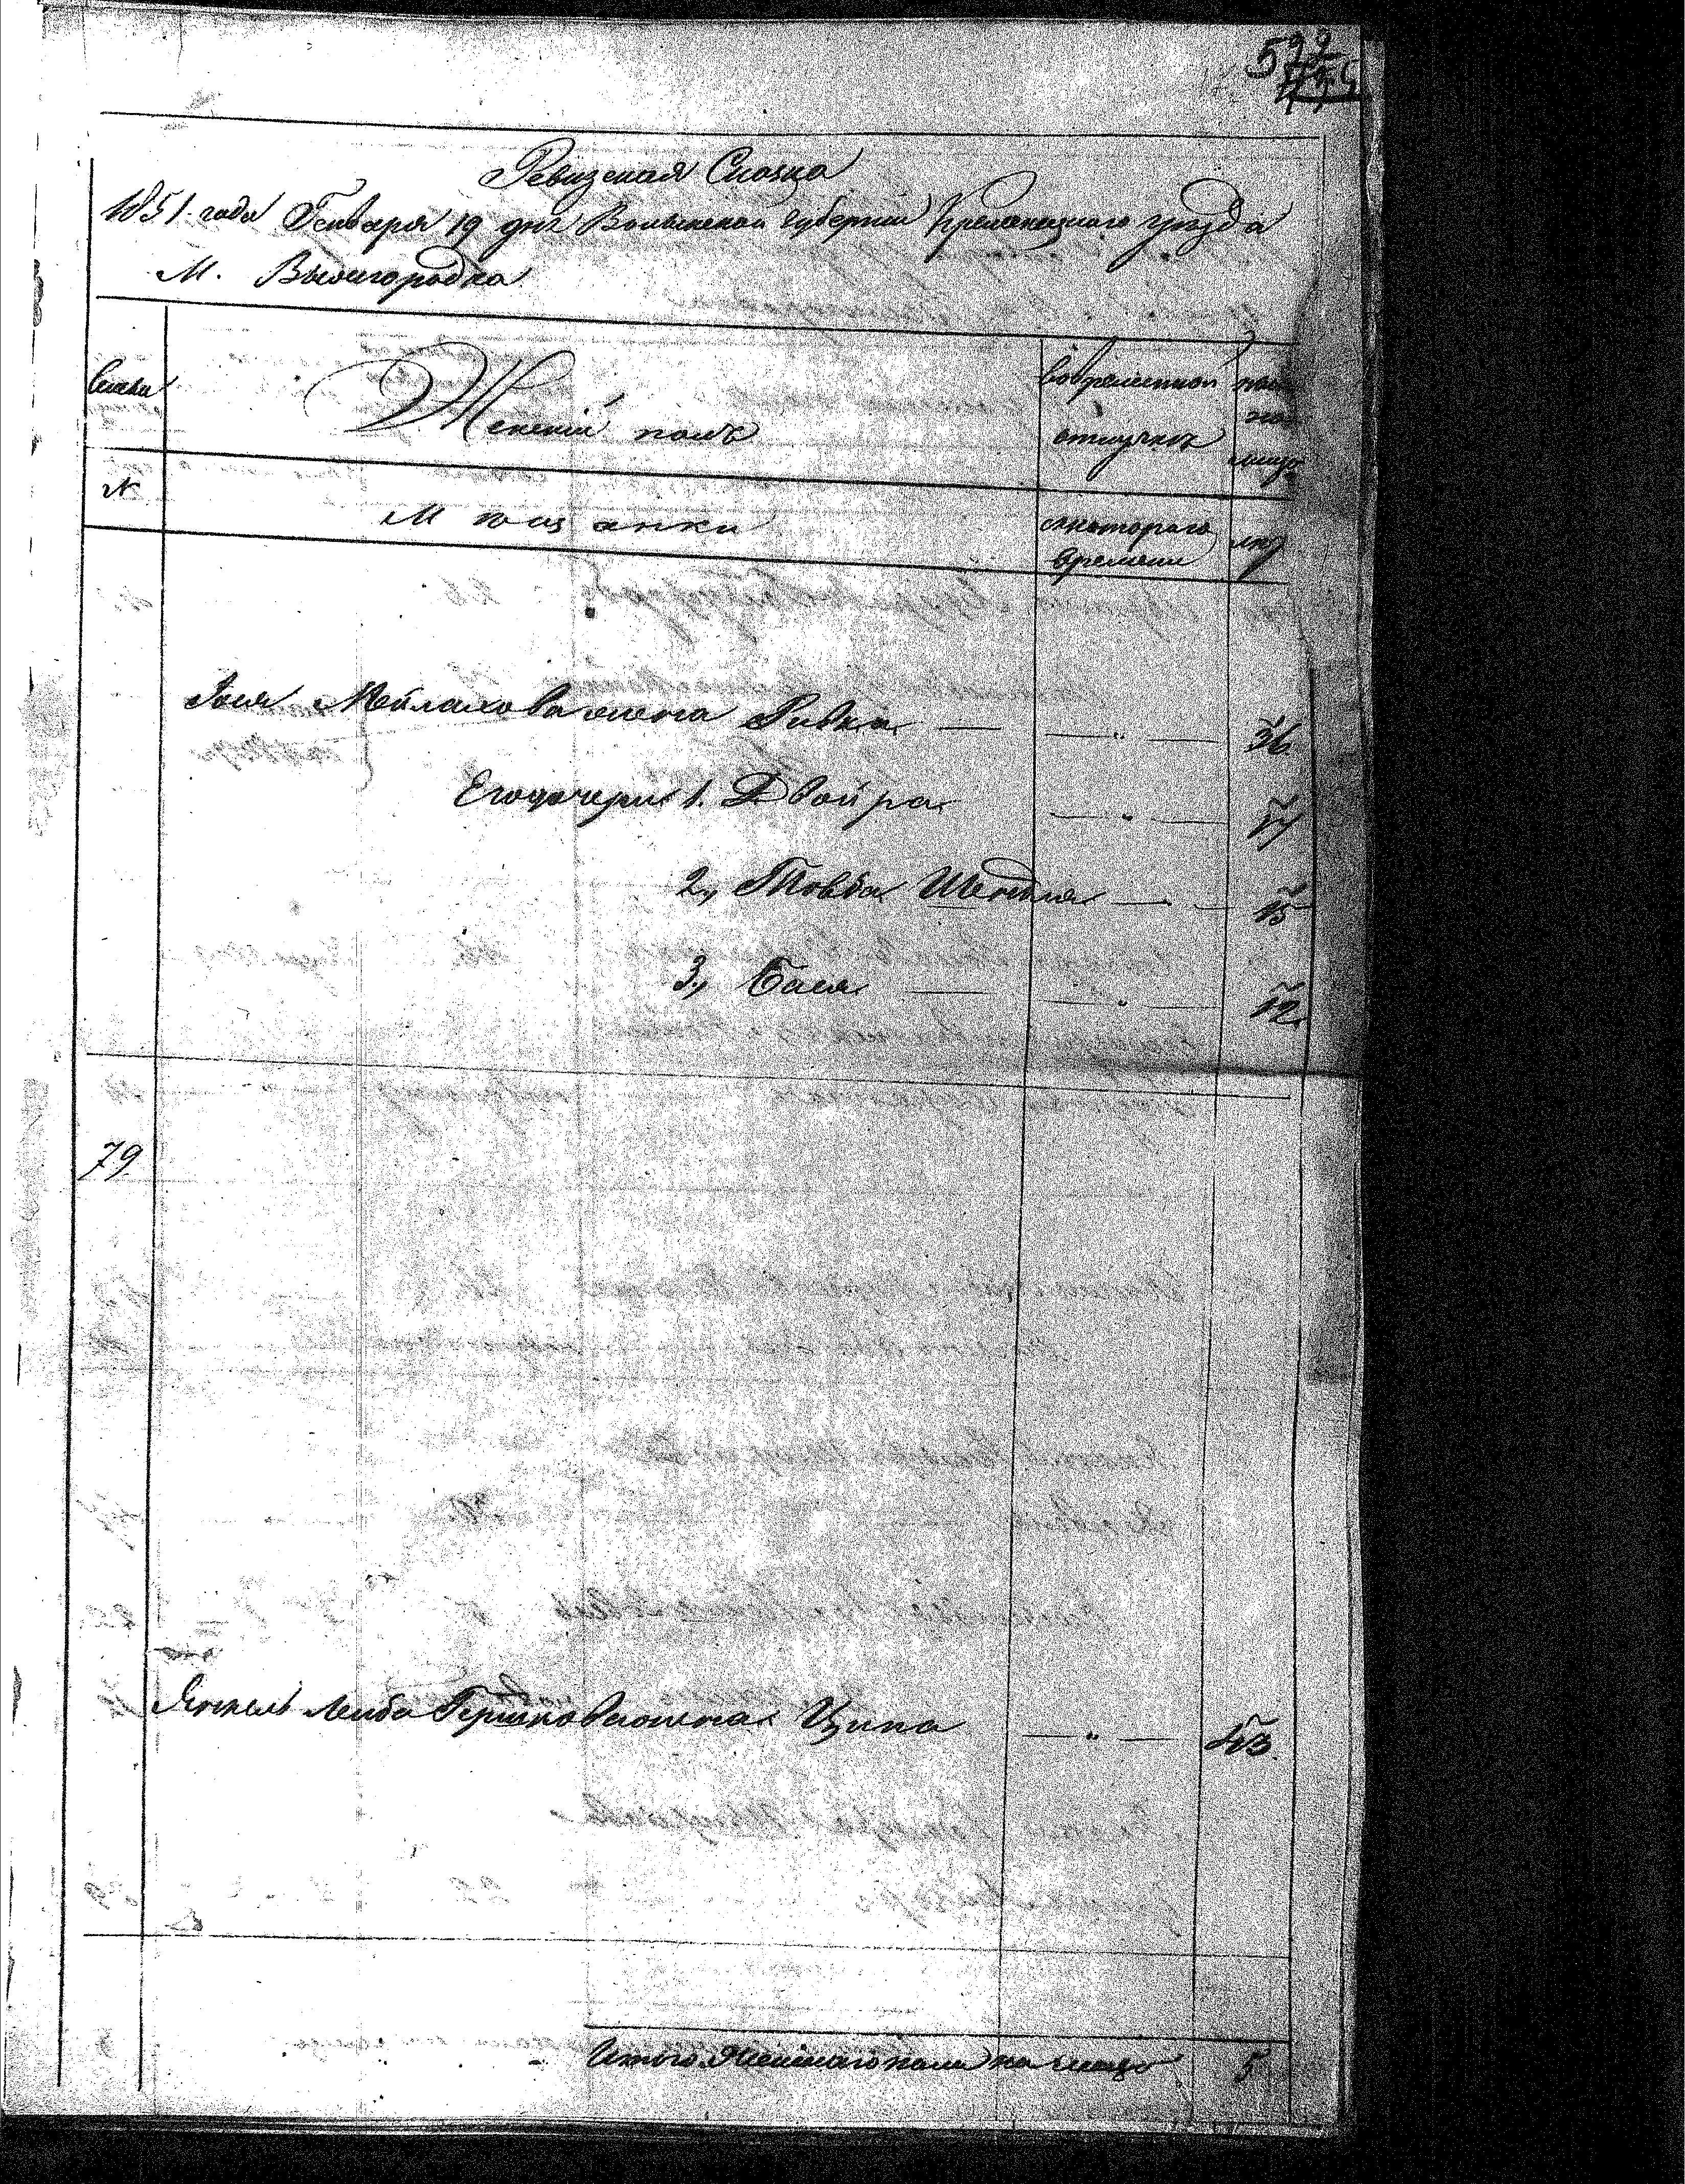 522
Ревизская Сказка
1851. года Генваря 19 дня Волынской губернии Кременецкаго уезда
М. Вышгородка
Семьи
Женский полъ
во временной
отлучке
ныне
на
лицо
№
Мещанки
с котораго
времени
лет
Мейлахова жена Ривка — — " — 36
Его дочери 1. Двойра — " — 17
2, Товба Шендля — — 15
3, Бася — — " — 12
79.
Янкель Лейба Гершкова жена Ципа — " — 43
Итого женскаго пола на лицо 5